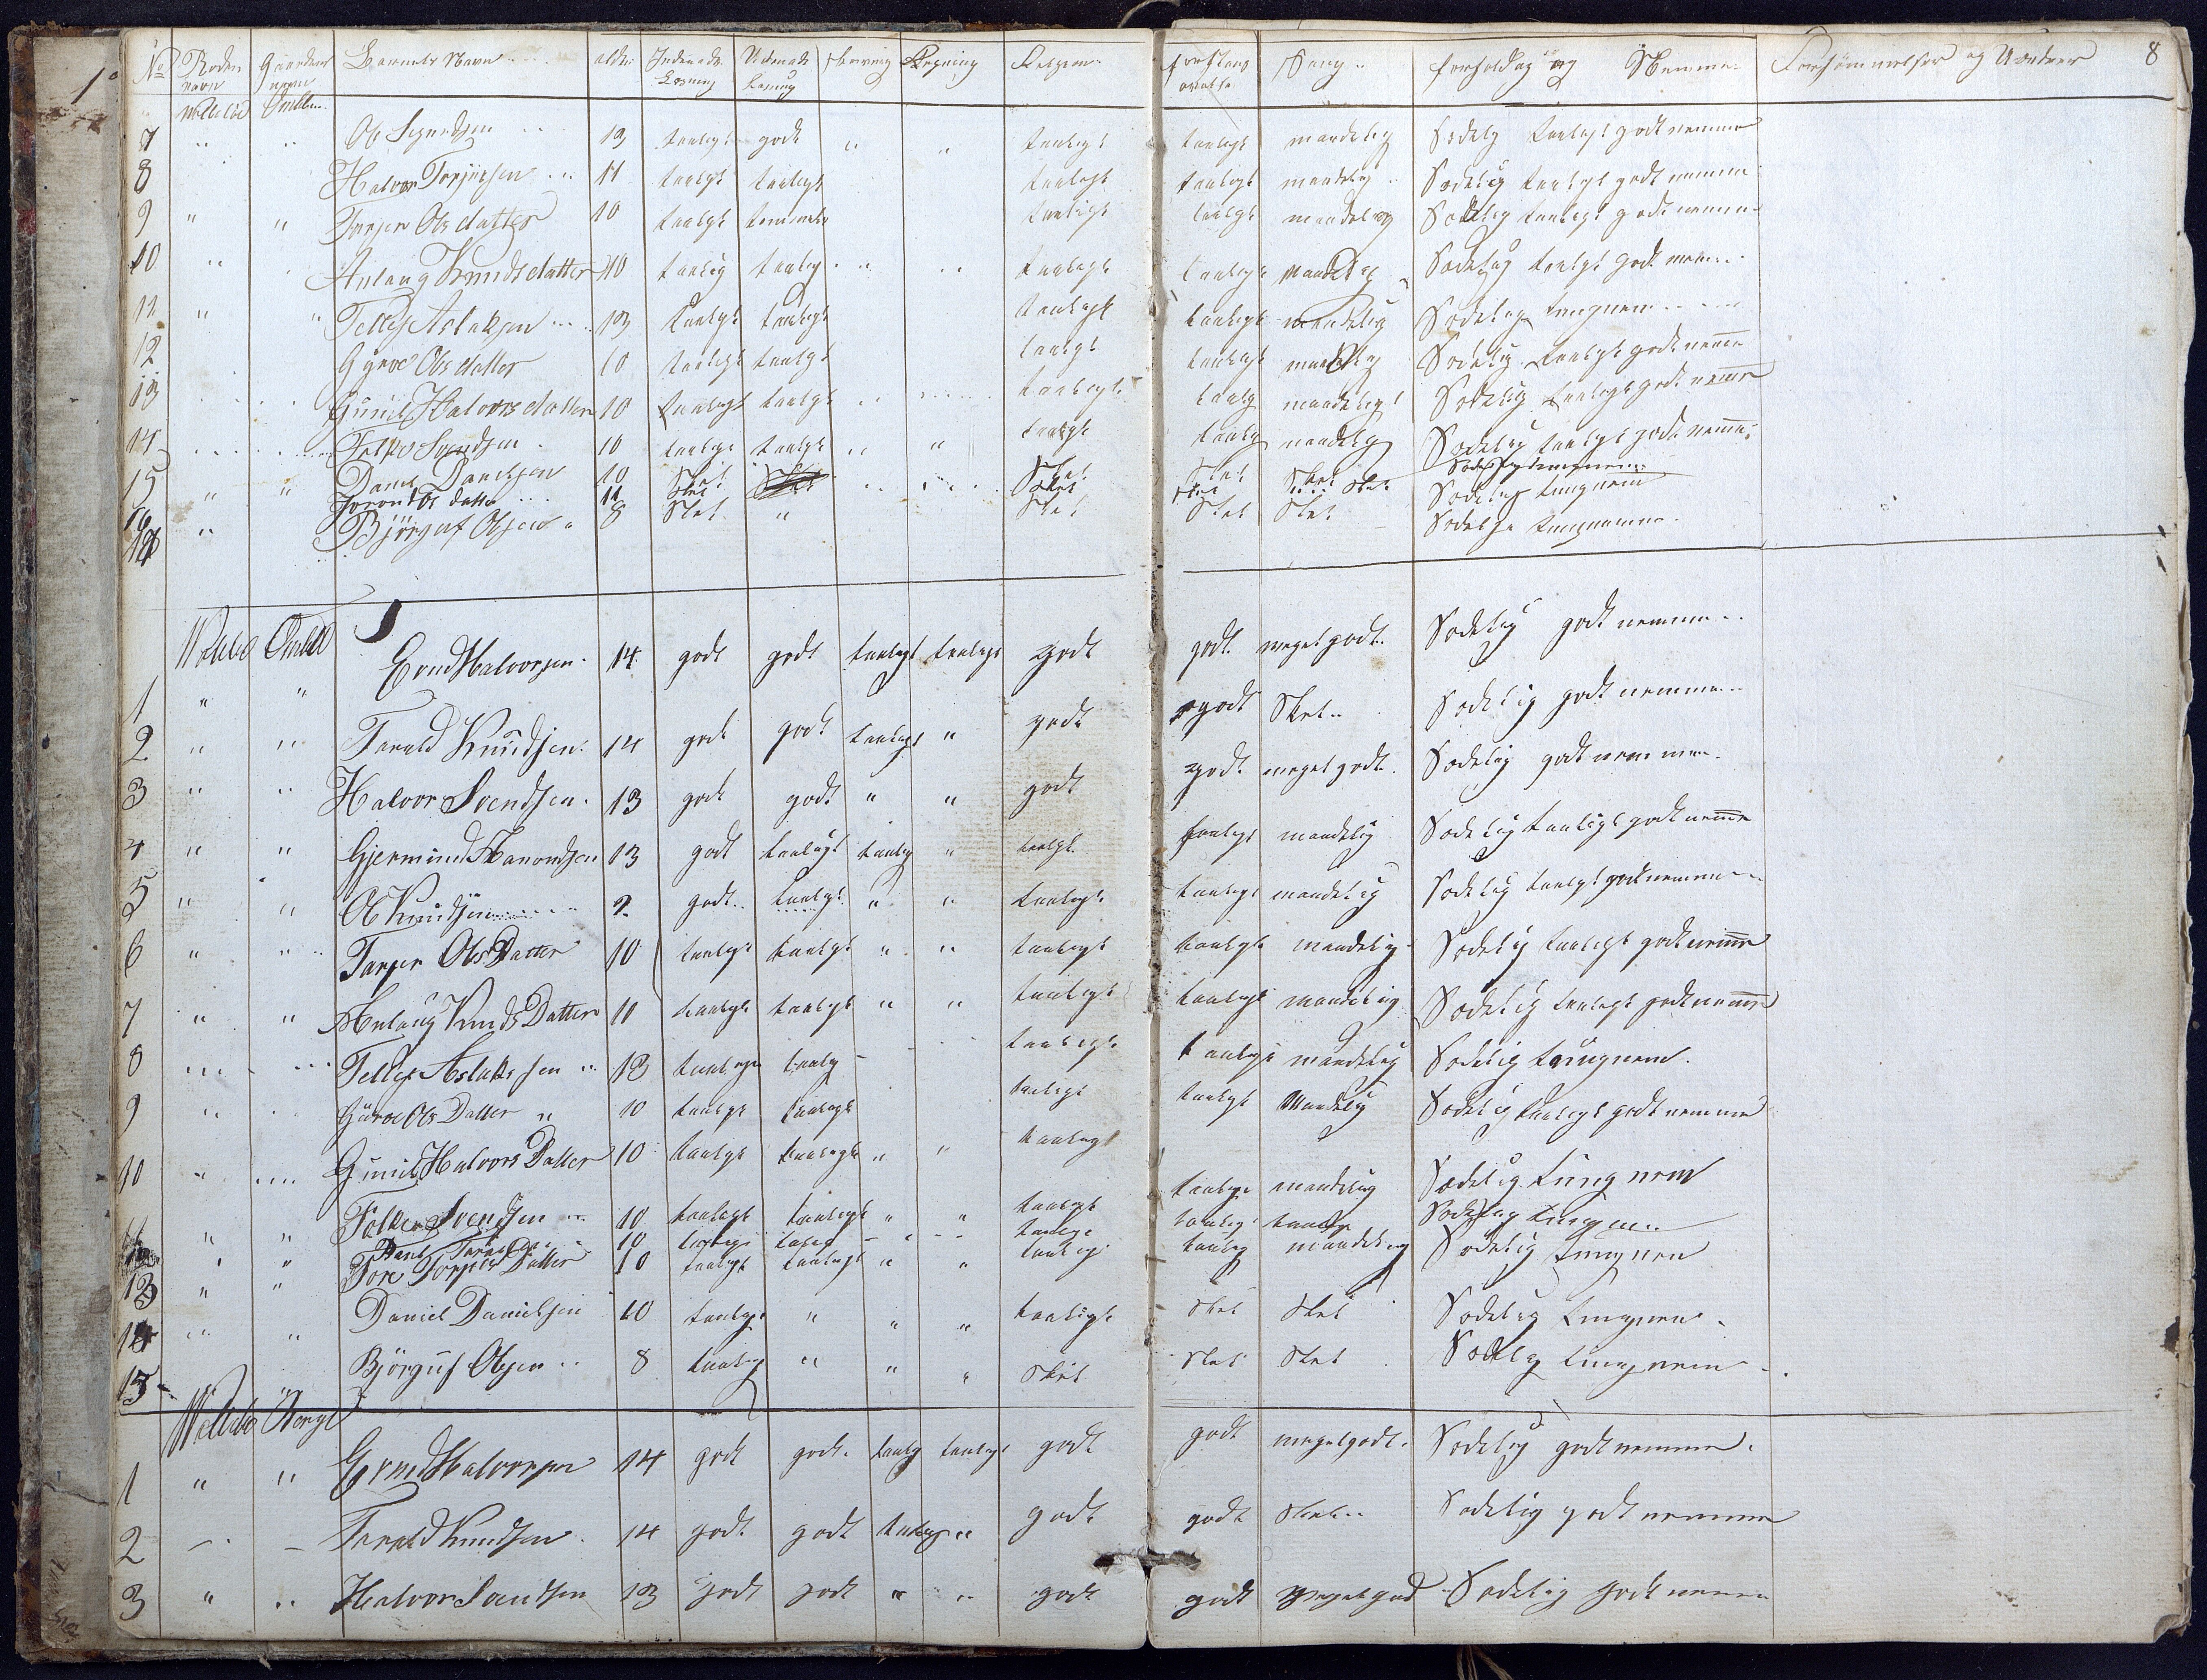 No Roden navn Gaardens navn Barnets Navn alder Indenads Læsning Udenads Læsning Skrivning Regning Religion Forstands øvelse Sang forhold og Nemme Forsømmelser og Uordner 8
7 " " Ole Sigurdsen 13 taaligt godt " " taaligt taaligt maadelig Sædelig taaligt godt nemme
8 Halvor Torjusen 11 taaligt taaligt taaligt taaligt maadelig Sædelig taaligt godt nemme
9 " " Torjer Olsdatter 10 taaligt taaligt taaligt maadelig Sædelig taaligt godt nemme
10 " Anlaug Knudsdatter 10 taalig taalig " " taaligt taaligt maadelig Sædelig taaligt godt nemme
11 " " Tellef Aslaksen 13 taaligt taaligt taaligt taaligt maadelig Sædelig tungnem
12 Gyroe Olsdatter 10 taaligt taaligt taaligt taaligt maadelig Sædelig taaligt godt nemme
13 Gunil Halvorsdatter 10 taaligt taaligt taaligt taalig maadeligt Sædelig taaligt godt nemme
14 Folke Svendsen 10 taaligt taaligt " " taaligt taalig maadelig Sædelig taaligt godt nemme
15 " " Daniel Danielsen 10 Slet Slet Slet Slet Slet
16 Olsdatter 11 Slet Slet Slet Slet Sædelig tungnem
17 " Björguf Olsen 8 Slet " Slet Slet Slet Sædelig tungnemme
1 " " Evind Halvorsen 14 godt godt taaligt taaligt godt godt meget godt Sædelig godt nemme
2 " " Tarald Knudsen 14 godt godt taaligt " godt godt Slet Sædelig godt nemme
3 " " Halvor Svendsen 13 godt godt " " godt godt meget godt Sædelig godt nemme
4 " " Gjermund Aanondsen 13 godt taaligt taalig " taaligt taaligt maadelig Sædelig taaligt godt nemme
5 " " Ole Knudsen 9 godt taaligt " " taaligt taaligt maadelig Sædelig taaligt godt nemme
6 " " Torjer Ols Datter 10 taaligt taaligt " " taaligt taaligt maadelig Sædelig taaligt godt nemme
7 " " Anlaug Knuds Datter 11 taaligt taaligt " " taaligt taaligt maadelig Sædelig taaligt godt nemme
8 Tellef Aslaksen 13 taaligt taalig taaligt taaligt maadelig Sædelig tungnem
9 " Güroe Ols Datter " 10 taaligt taaligt taaligt taaligt Maadelig Sædelig taaligt godt nemme
10 " Gunil Halvors Datter 10 taaligt taaligt " " taaligt taaligt maadelig Sædelig tungnem
" " Folke Svendsen 10 taaligt taaligt " " taaligt taaligt Sædelig
12 " " 10 taaligt
13 " " Tore Torjus Datter 10 taaligt taaligt " " taaligt taalig maadelig Sædelig tungnem
14 " " Daniel Danielsen 10 taaligt " " " taaligt Slet Slet Sædelig tungnem
15 " Björguf Olsen 8 taalig " " " Slet Slet Slet Sædelig tungnem
1 " " Evind Halvorsen 14 godt godt taalig taaligt godt godt meget godt Sædelig godt nemme
2 Tarald Knudsen 14 godt godt taaligt " godt godt Slet Sædelig godt nemme
3 " " Halvor Svendsen 13 godt godt " " godt godt meget god Sædelig godt nemme